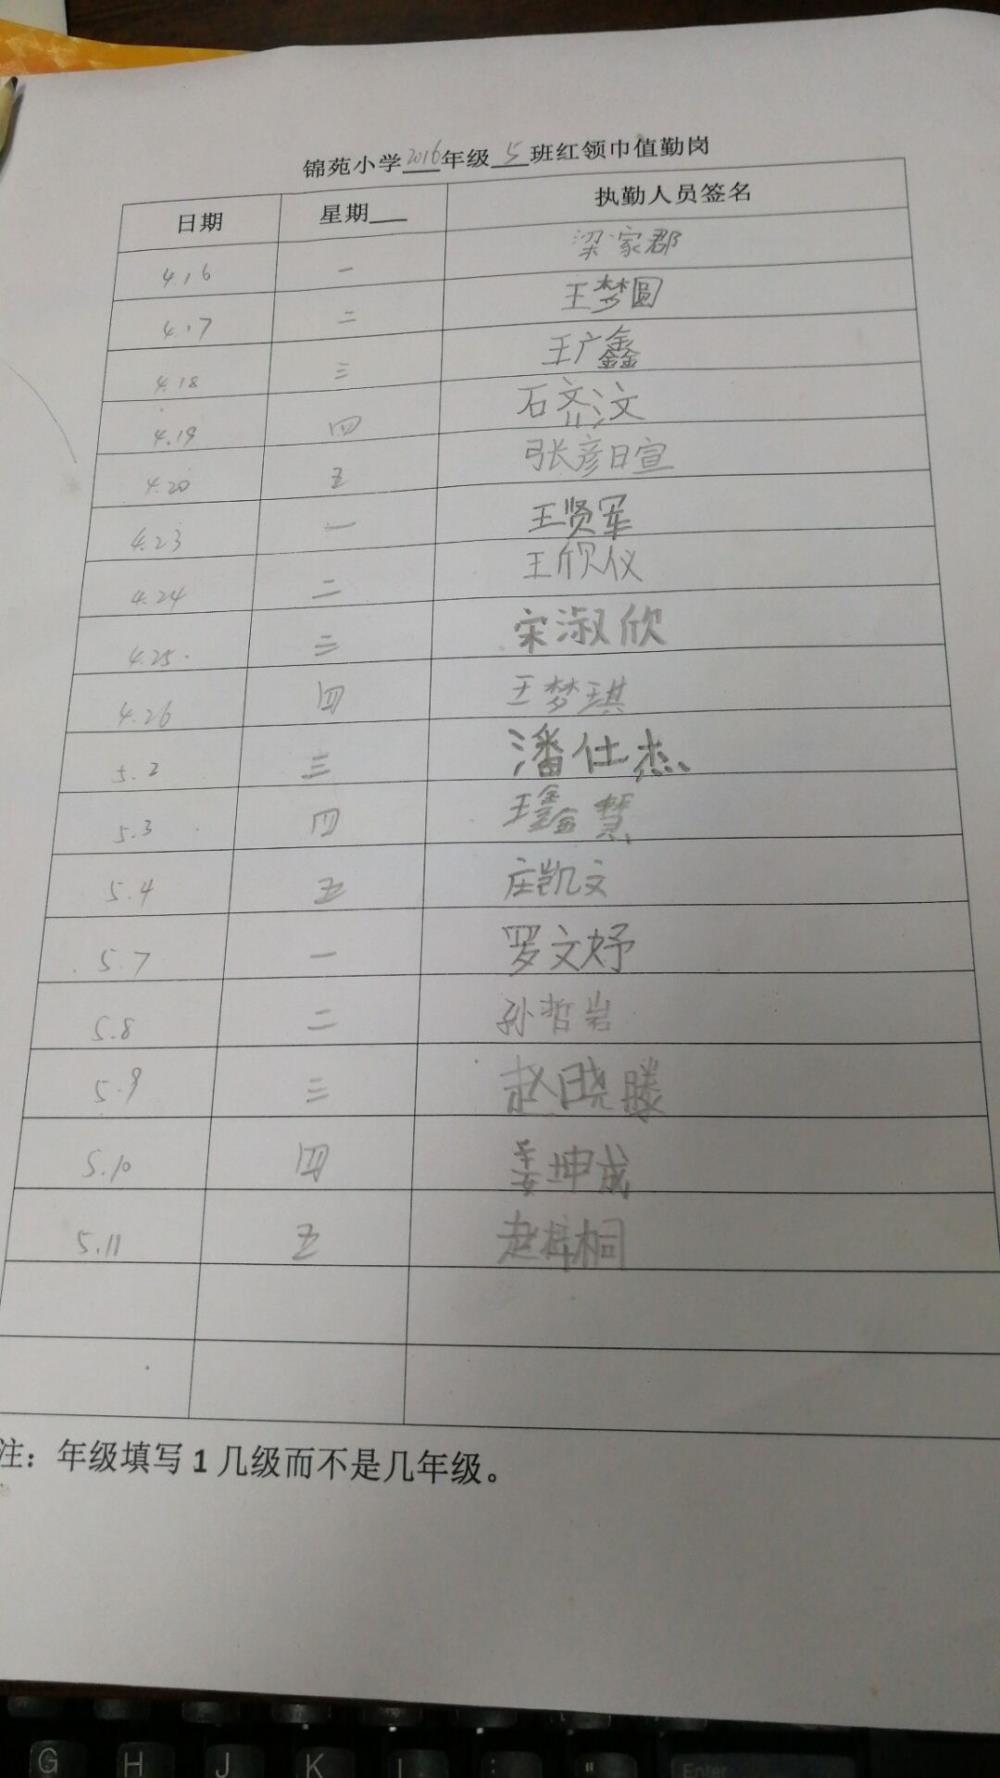 锦苑小学2016年级5班红领巾值勤岗
日期 星期 执勤人员签名
4.16 一 梁家郡
4.17 二 王梦圆
4.18 三 王广鑫
4.19 四 石齐汶
4.20 五 张彦日宣
4.23 一 王贤军
4.24 二 王欣仪
4.25. 三 宋淑欣
4.26 四 王梦琪
5.2 三 潘仕杰
5.3 四 王鑫慧
5.4 五 庄凯文
5.7 一 罗文妤
5.8 二 孙哲岩
5.9 三 赵晓滕
5.10 四 姜坤成
5.11 五 赵梓桐
注：年级填写1几级而不是几年级。
G H J K L : " Enter